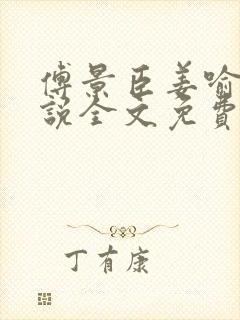 傅景臣姜喻
說全文免費
丁有康